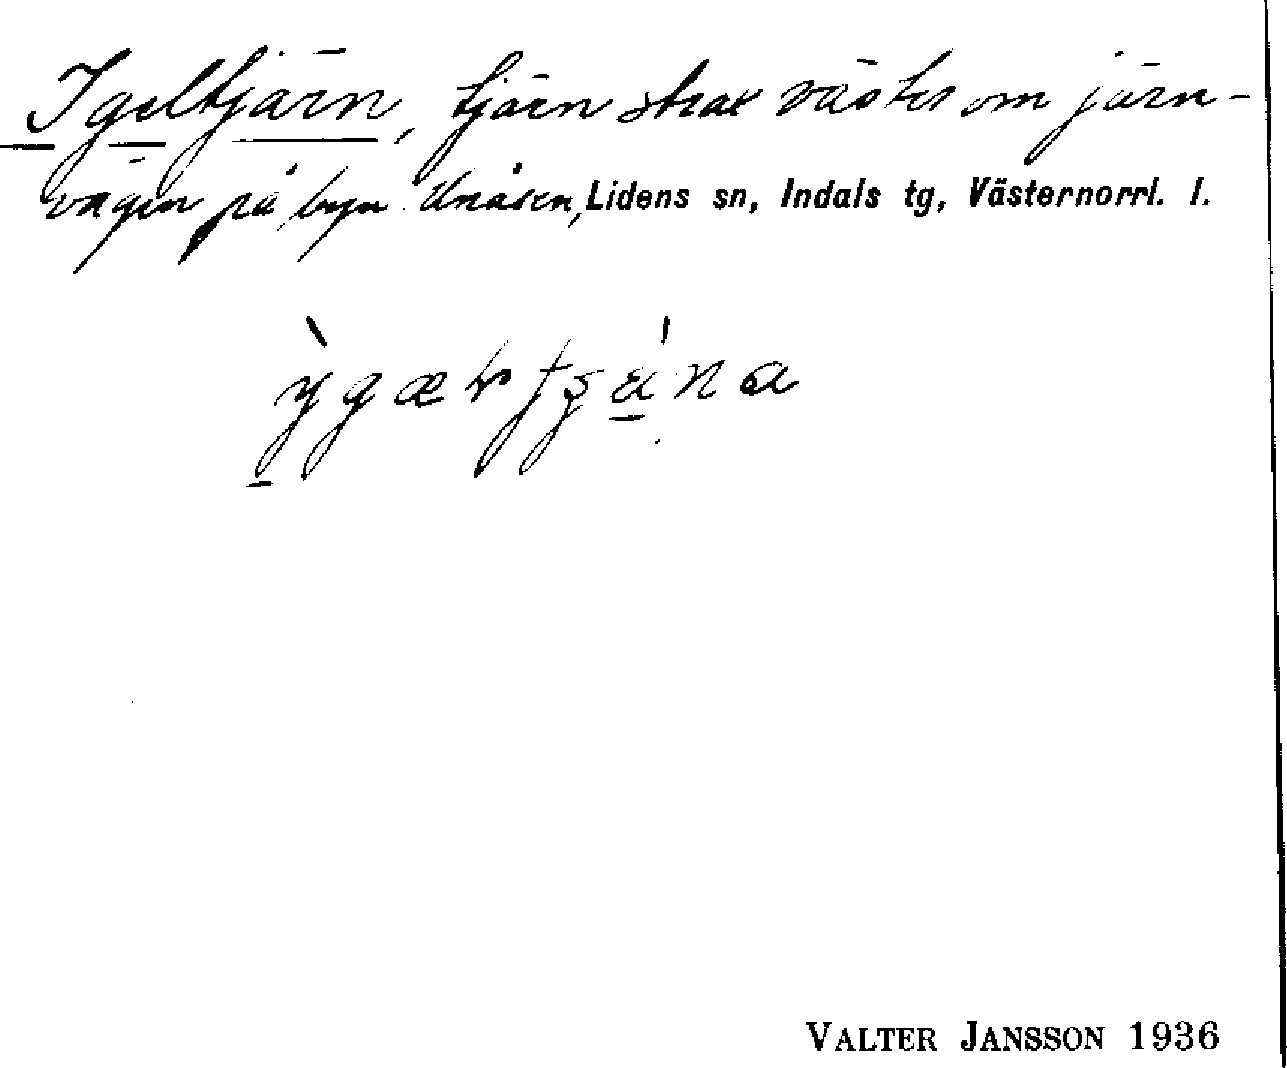 Igeltjärn, tjärn strax väster om järn-
vägen på byn Unåsen, Lidens sn, Indals tg, Västernorrl. l.
VALTER JANSSON 1936